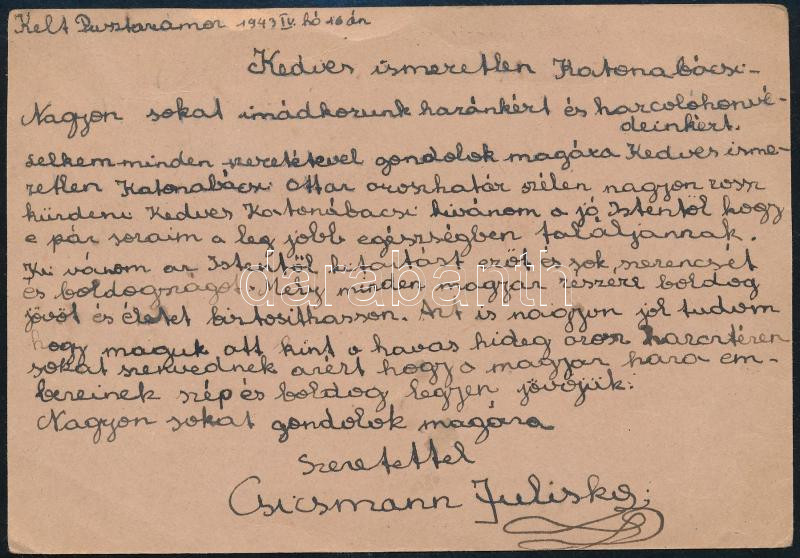 Kelt Pusztazámor 1943 IV. hó 10 én
Kedves ismeretlen Katonabácsi-
Nagyon sokat imádkozunk hazánkért és harcolóhonvé-
deinkért.
Lelkem minden szeretetével gondolok magára Kedves isme-
retlen Katonabácsi Ottaz oroszhatár szélen nagyon rossz
kürdeni Kedves Katonábacsi kivánom a jó Istentöl hogy
e pár soraim a leg jobb egészségben találjannak.
Ki vánom az Istentöl kitartást eröt és sok szerencsét
és boldogságot. Mely minden magyar részére boldog
jövöt és életet biztosithasson. Azt is nagyon jol tudom
hogy maguk ott kint a havas hideg orosz harcztéren
sokat szenvednek azért hogy a magyar haza em-
bereinek szép és boldog legyen jövöjük.
Nagyon sokat gondolok magára
szeretettel
Csicsmann Juliska.
darabanth